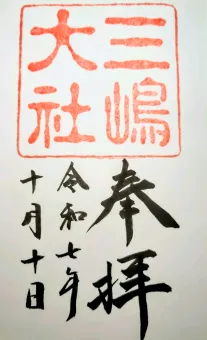 三嶋
大社
奉拝
令和七年
十月十日